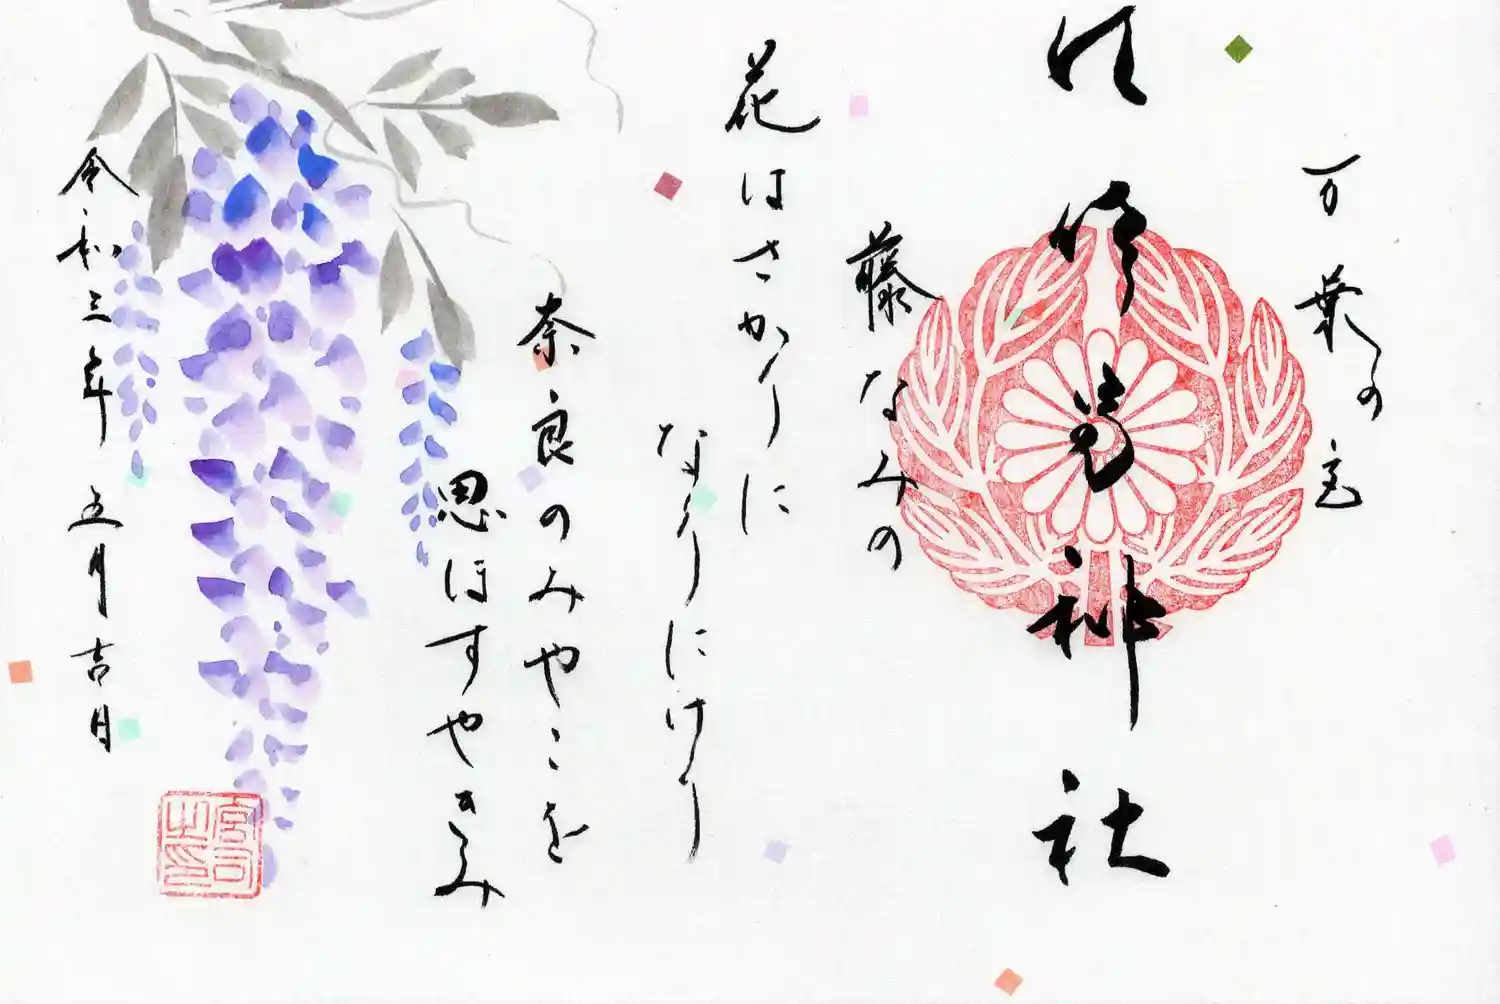 万葉の宮
神社
藤なみの
花はさかりに
なりにけり
奈良のみやこを
思ほすやきみ
令和三年五月吉日
宮司之印